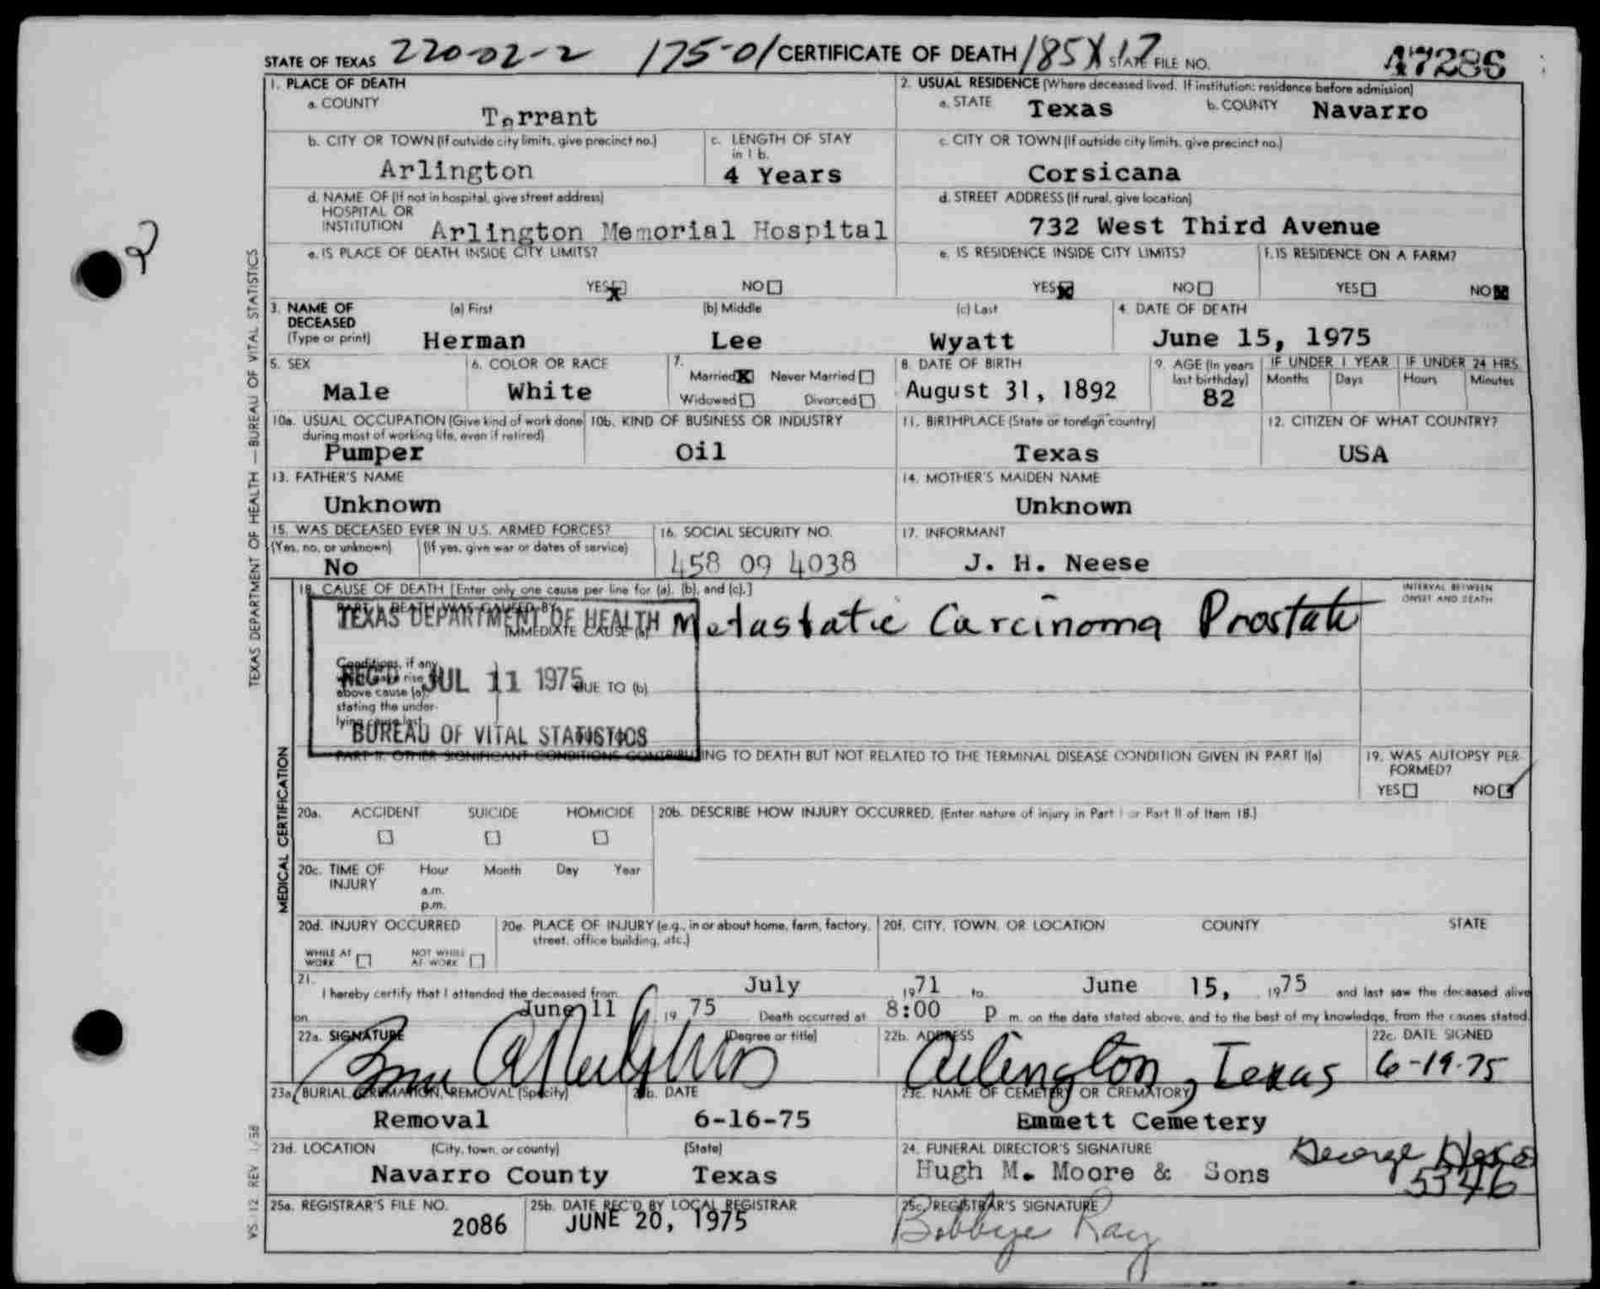 STATE OF TEXAS 220-02-2 175-01 CERTIFICATE OF DEATH 185X17 STATE FILE NO. 47286
1. PLACE OF DEATH
a. COUNTY
Tarrant
2. USUAL RESIDENCE (Where deceased lived. If institution: residence before admission)
a. STATE Texas b. COUNTY Navarro
b. CITY OR TOWN (If outside city limits, give precinct no.)
Arlington
c. LENGTH OF STAY in 1 b.
4 Years
c. CITY OR TOWN (If outside city limits, give precinct no.)
Corsicana
d. NAME OF (If not in hospital, give street address)
HOSPITAL OR
INSTITUTION Arlington Memorial Hospital
d. STREET ADDRESS (If rural, give location)
732 West Third Avenue
e. IS PLACE OF DEATH INSIDE CITY LIMITS?
YES NO
e. IS RESIDENCE INSIDE CITY LIMITS?
YES NO
f. IS RESIDENCE ON A FARM?
YES NO
3. NAME OF DECEASED (Type or print)
(a) First (b) Middle (c) Last
Herman Lee Wyatt
4. DATE OF DEATH
June 15, 1975
5. SEX
Male
6. COLOR OR RACE
White
7.
Married Never Married
Widowed Divorced
8. DATE OF BIRTH
August 31, 1892
9. AGE (In years last birthday)
82
IF UNDER 1 YEAR IF UNDER 24 HRS.
Months Days Hours Minutes
10a. USUAL OCCUPATION (Give kind of work done during most of working life, even if retired)
Pumper
10b. KIND OF BUSINESS OR INDUSTRY
Oil
11. BIRTHPLACE (State or foreign country)
Texas
12. CITIZEN OF WHAT COUNTRY?
USA
13. FATHER'S NAME
Unknown
14. MOTHER'S MAIDEN NAME
Unknown
15. WAS DECEASED EVER IN U.S. ARMED FORCES?
(Yes, no, or unknown) (If yes, give war or dates of service)
No
16. SOCIAL SECURITY NO.
458 09 4038
17. INFORMANT
J. H. Neese
18. CAUSE OF DEATH [Enter only one cause per line for (a), (b), and (c).]
PART I. DEATH WAS CAUSED BY:
IMMEDIATE CAUSE (a) Metastatic Carcinoma Prostate
INTERVAL BETWEEN ONSET AND DEATH
TEXAS DEPARTMENT OF HEALTH
REC'D JUL 11 1975
BUREAU OF VITAL STATISTICS
Conditions, if any
above cause (a),
stating the under-
lying cause last.
DUE TO (b)
PART II. OTHER SIGNIFICANT CONDITIONS CONTRIBUTING TO DEATH BUT NOT RELATED TO THE TERMINAL DISEASE CONDITION GIVEN IN PART I(a)
19. WAS AUTOPSY PERFORMED?
YES NO
20a. ACCIDENT SUICIDE HOMICIDE
20b. DESCRIBE HOW INJURY OCCURRED. (Enter nature of injury in Part I or Part II of Item 18.)
20c. TIME OF INJURY Hour Month Day Year
a.m.
p.m.
20d. INJURY OCCURRED
WHILE AT WORK NOT WHILE AT WORK
20e. PLACE OF INJURY (e.g., in or about home, farm, factory, street, office building, etc.)
20f. CITY, TOWN, OR LOCATION COUNTY STATE
21. I hereby certify that I attended the deceased from July 1971 to June 15, 1975 and last saw the deceased alive
on June 11 1975 Death occurred at 8:00 p m. on the date stated above, and to the best of my knowledge, from the causes stated.
22a. SIGNATURE (Degree or title)
22b. ADDRESS
Arlington, Texas
22c. DATE SIGNED
6-19-75
23a. BURIAL, CREMATION, REMOVAL (Specify)
Removal
23b. DATE
6-16-75
23c. NAME OF CEMETERY OR CREMATORY
Emmett Cemetery
23d. LOCATION (City, town, or county) (State)
Navarro County Texas
24. FUNERAL DIRECTOR'S SIGNATURE
Hugh M. Moore & Sons George 5546
25a. REGISTRAR'S FILE NO.
2086
25b. DATE REC'D BY LOCAL REGISTRAR
JUNE 20, 1975
25c. REGISTRAR'S SIGNATURE
Bobbye Ray
TEXAS DEPARTMENT OF HEALTH—BUREAU OF VITAL STATISTICS
MEDICAL CERTIFICATION
VS 12 REV 1/58
2